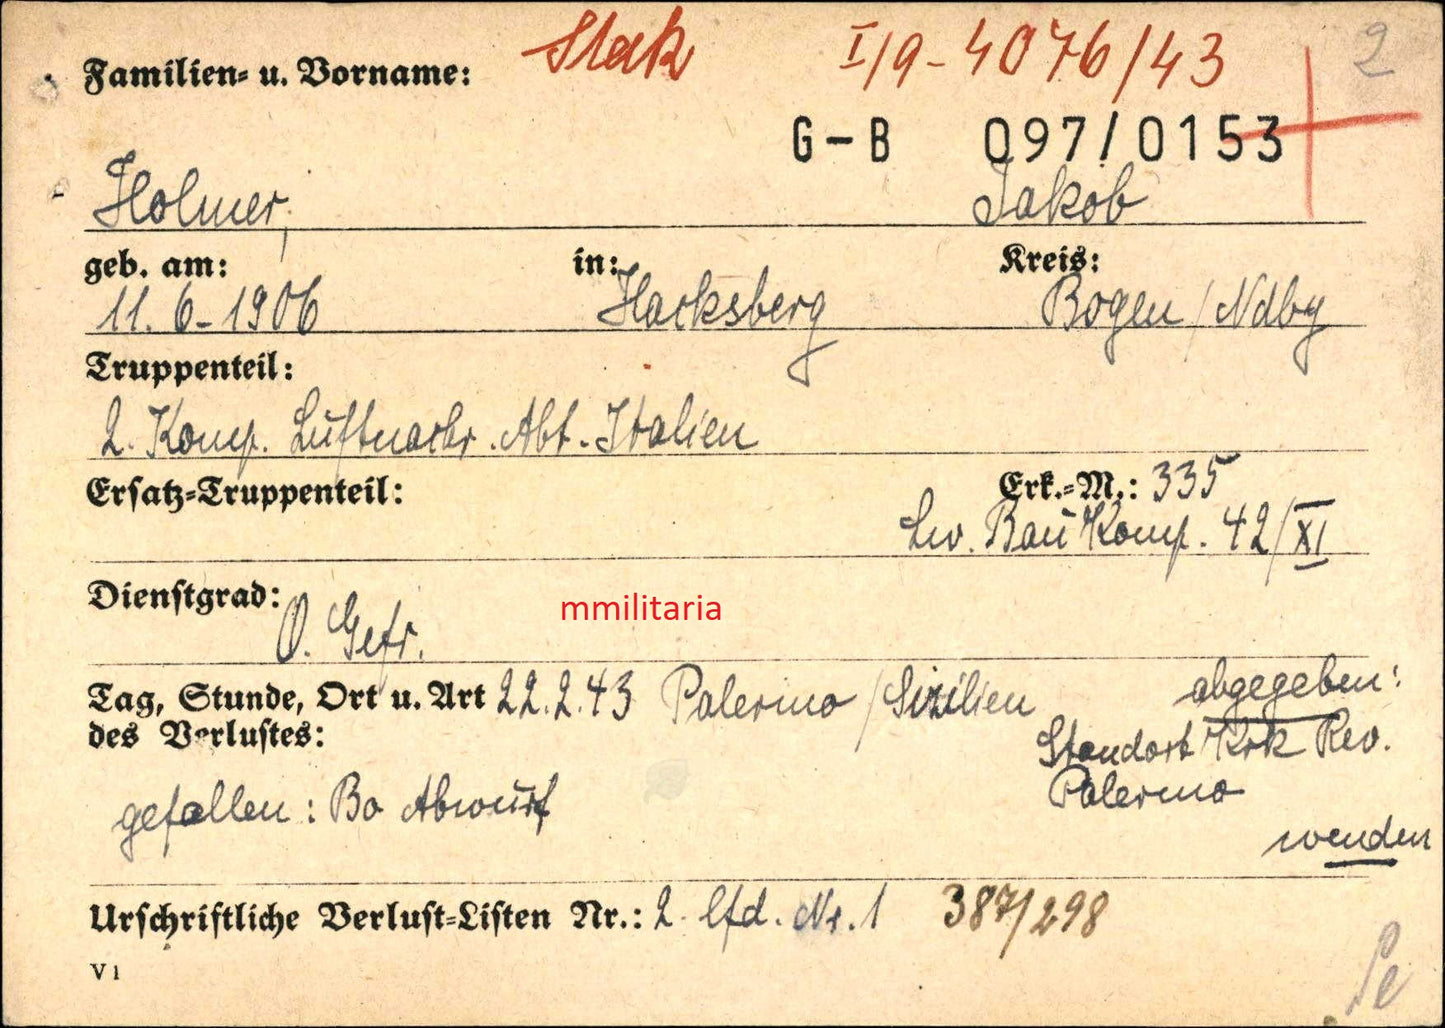 Stak I/9-4076/43 2
Familien- u. Vorname:
G-B 097/0153
Holmer, Jakob
geb. am: in: Kreis:
11. 6-1906 Hacksberg Bogen/Ndby
Truppenteil:
2. Komp. Luftnachr. Abt. Italien
Ersatz-Truppenteil: Erk.-M.: 335
Lw. Bau Komp. 42/XI
Dienstgrad:
O. Gefr.
mmilitaria
Tag, Stunde, Ort u. Art 22.2.43 Palermo/Sizilien abgegeben:
des Verlustes: Standort Krk Rev.
Palermo
gefallen: Bo Abwurf
wenden
Urschriftliche Verlust-Listen Nr.: 2 lfd. Nr. 1 387/298
V 1